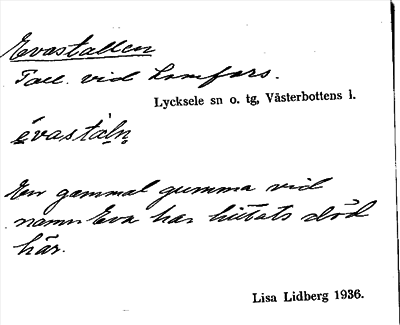 Evastallen
Tall vid Lomfors.
Lycksele sn o. tg, Västerbottens l.
évastàln
En gammal gumma vid
namn Eva har hittats död
här.
Lisa Lidberg 1936.